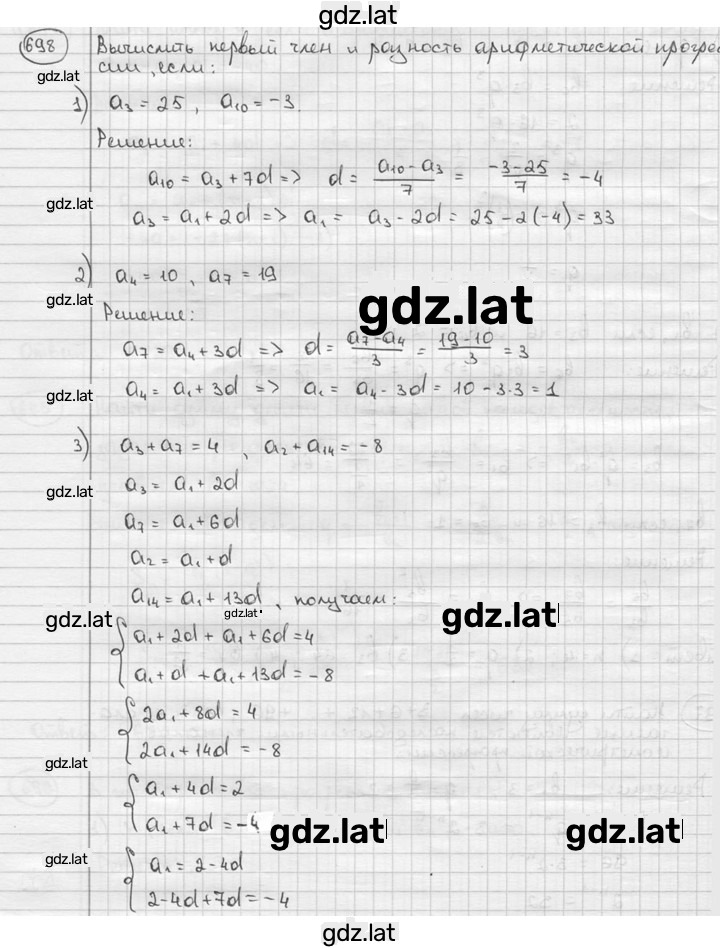 gdz.lat
698 Вычислить первый член и разность арифметической прогрес
сии, если:
gdz.lat
1) a₃ = 25, a₁₀ = -3.
Решение:
a₁₀ = a₃ + 7d => d = (a₁₀ - a₃)/7 = (-3-25)/7 = -4
gdz.lat
a₃ = a₁ + 2d => a₁ = a₃ - 2d = 25 - 2(-4) = 33
2) a₄ = 10, a₇ = 19
gdz.lat
gdz.lat
Решение:
a₇ = a₄ + 3d => d = (a₇-a₄)/3 = (19-10)/3 = 3
a₄ = a₁ + 3d => a₁ = a₄ - 3d = 10 - 3·3 = 1
gdz.lat
3) a₃ + a₇ = 4, a₂ + a₁₄ = -8
a₃ = a₁ + 2d
gdz.lat
a₇ = a₁ + 6d
a₂ = a₁ + d
a₁₄ = a₁ + 13d, получаем:
gdz.lat
gdz.lat
gdz.lat
{ a₁ + 2d + a₁ + 6d = 4
a₁ + d + a₁ + 13d = -8
{ 2a₁ + 8d = 4
2a₁ + 14d = -8
gdz.lat
{ a₁ + 4d = 2
a₁ + 7d = -4
gdz.lat
gdz.lat
{ a₁ = 2 - 4d
gdz.lat
2 - 4d + 7d = -4
gdz.lat